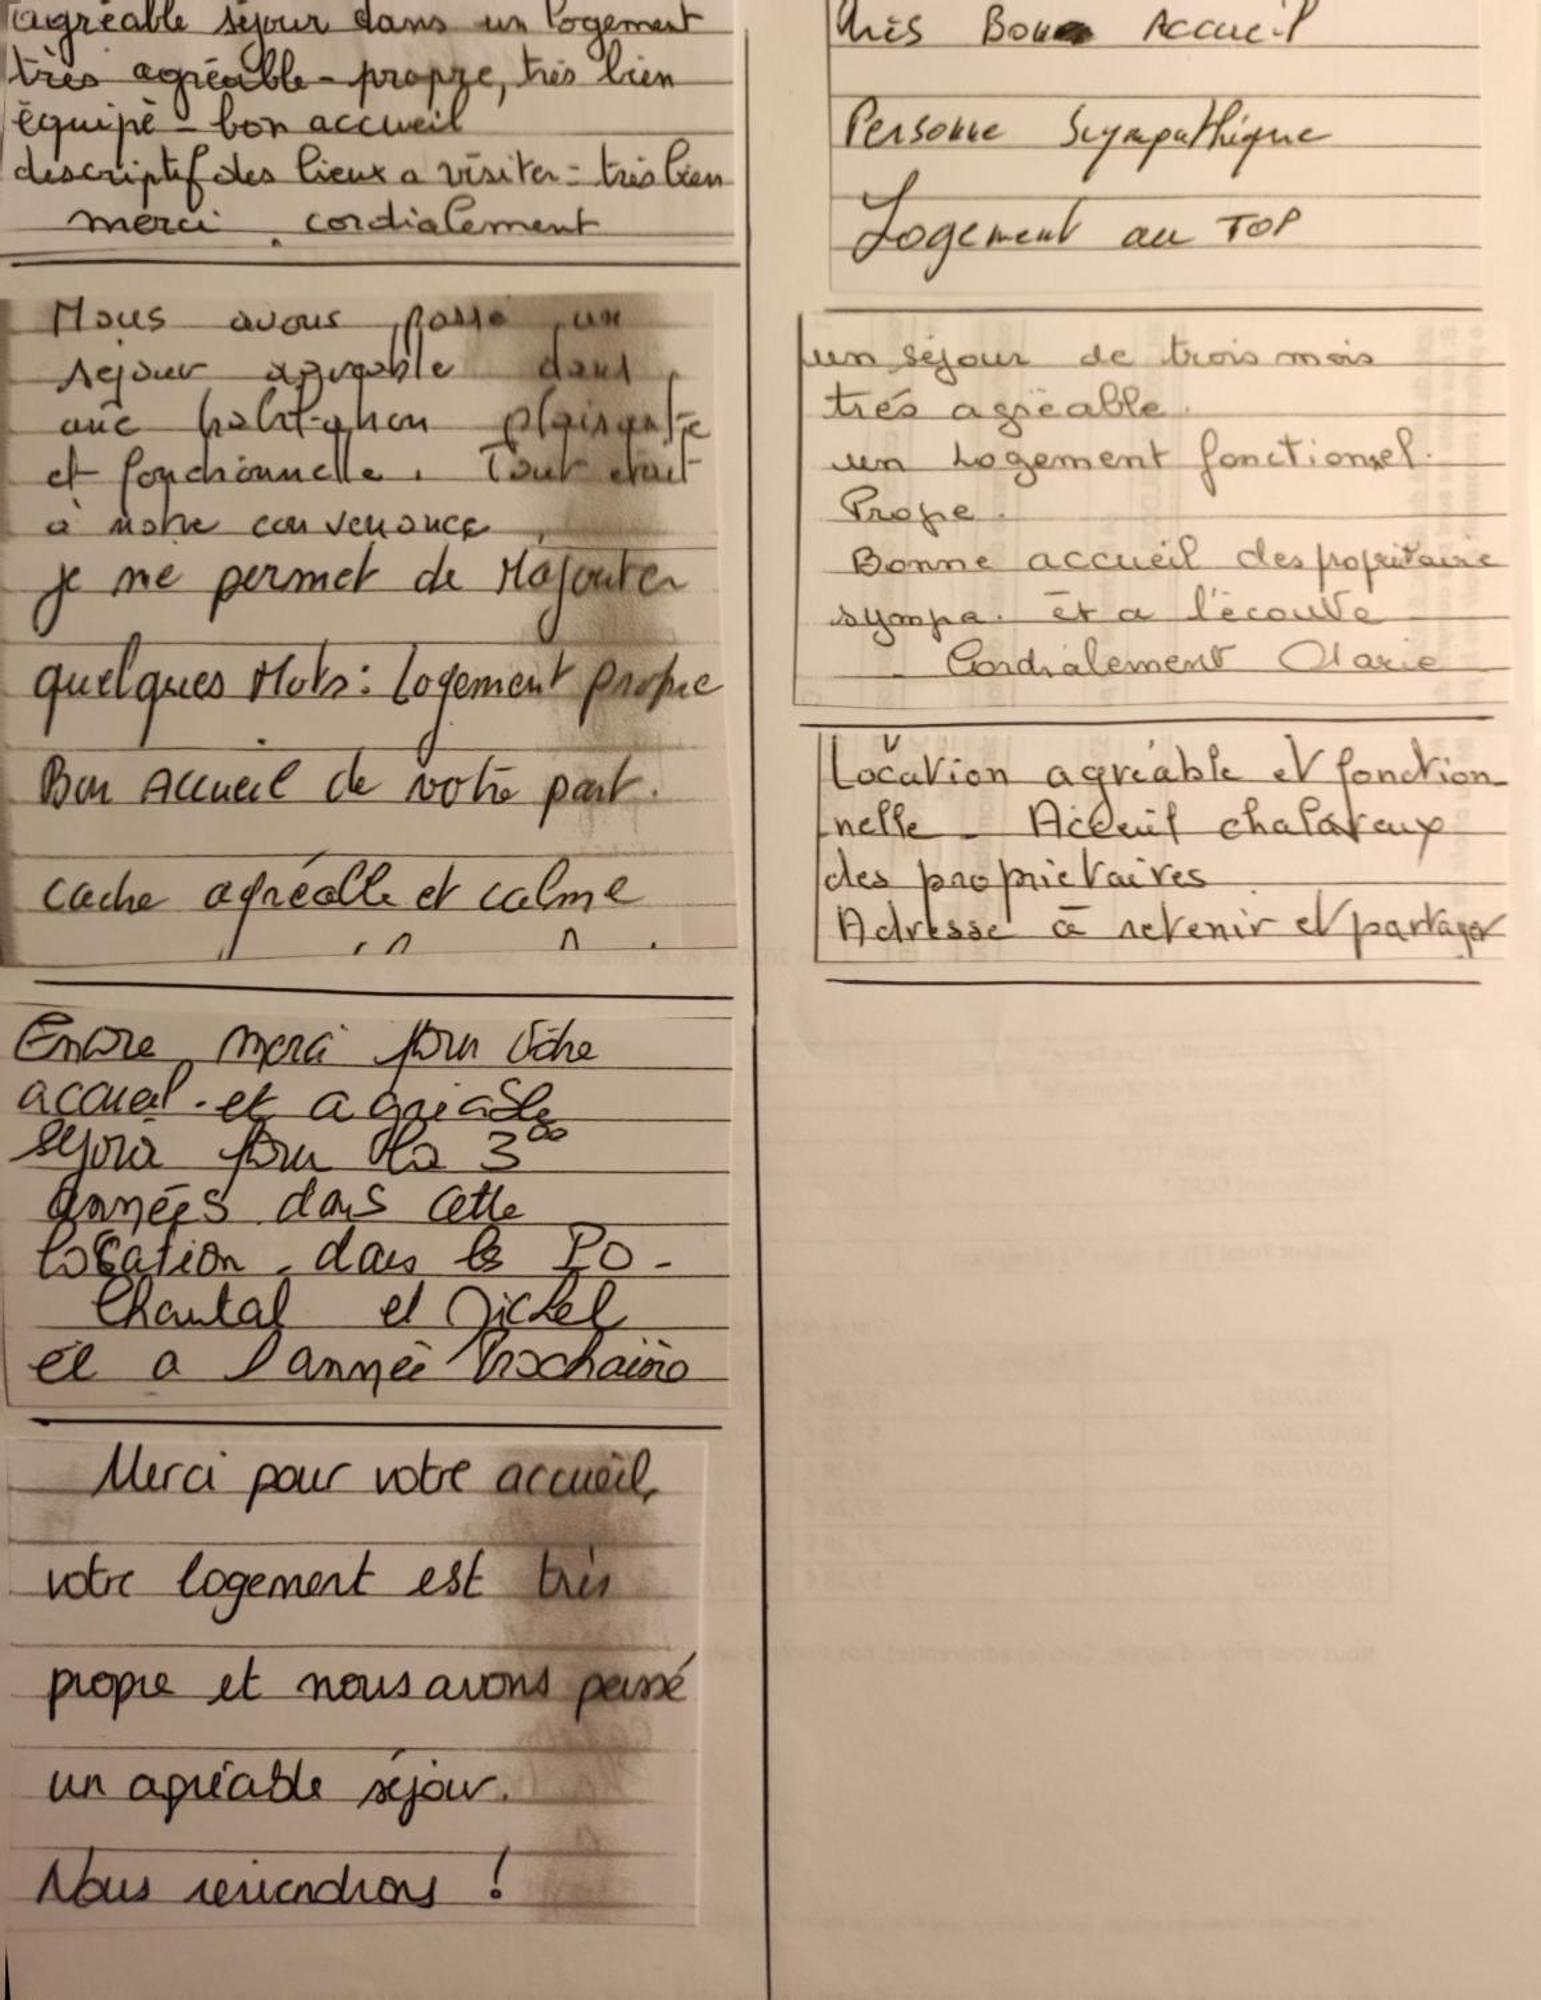 agréable séjour dans un logement
très agréable - propre, très bien
équipé - bon accueil
descriptif des lieux a visiter - très bien
merci. cordialement
Nous avons passé un
sejour agréable dans
une habitation plaisante
et fonctionnelle. Tout était
à notre convenance
je me permet de Rajouter
quelques Mots: Logement propre
Bon Accueil de votre part.
cadre agréable et calme
Encore merci pour votre
accueil. et agréable
séjour pour la 3
années dans cette
location. dans les PO-
Chantal et Michel
et a l'année Prochaine
Merci pour votre accueil,
votre logement est très
propre et nous avons passé
un agréable séjour.
Nous reviendrons !
très Bon Accueil
Personne Sympathique
Logement au TOP
un séjour de trois mois
trés agréable.
un Logement fonctionnel.
Prope.
Bonne accueil des propritaire
sympa. et a l'écoute
Cordialement Marie
Location agréable et fonction-
nelle - Acceuil chaleureux
des propriétaires
Adresse à retenir et partager